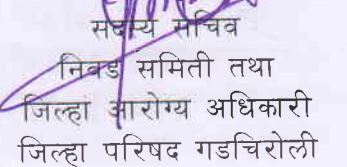 सदस्य सचिव
निवड समिती तथा
जिल्हा आरोग्य अधिकारी
जिल्हा परिषद गडचिरोली